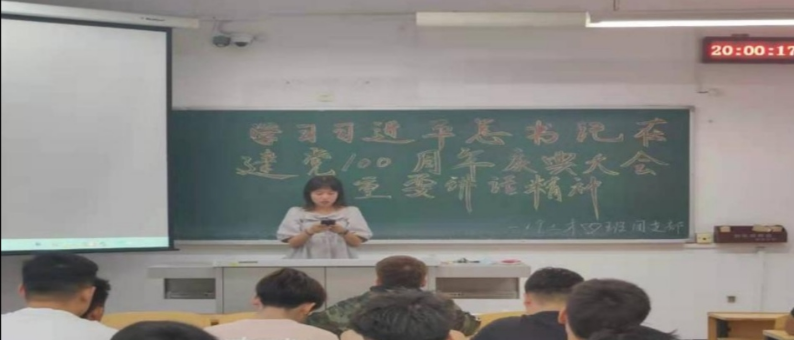 学习习近平总书记在
建党100周年庆典大会
重要讲话精神
团支部
20:00:17